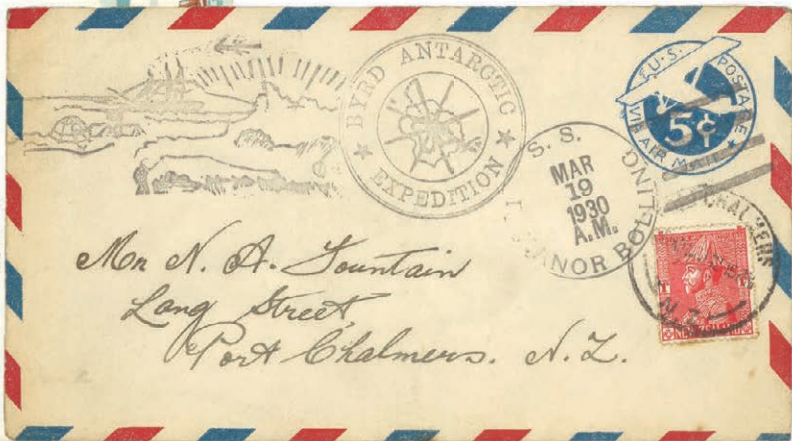 BYRD ANTARCTIC
EXPEDITION
U.S. POSTAGE
5¢
VIA AIR MAIL
S. S.
MAR
19
1930
A.M.
ANOR BOLLING
CHALMERS
N.Z.
Mr N. A. Fountain
Long Street,
Port Chalmers. N.Z.